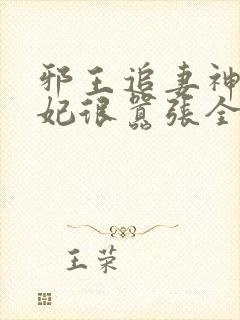 邪王追妻神
妃很嚣张全
王荣